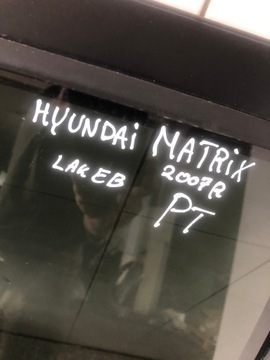 HYUNDAI MATRIX
LAK EB 2007R
PT